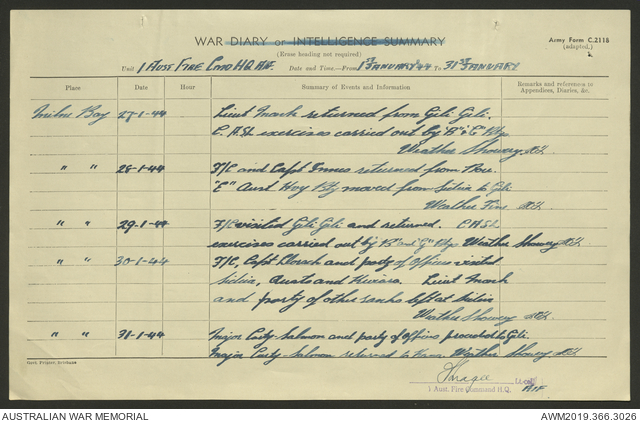 WAR DIARY or INTELLIGENCE SUMMARY
(Erase heading not required)
Army Form C.2118
(adapted.)
Unit 1 Aust Fire Comd HQ AIF. Date and Time—From 1st January 44 to 31st January
Place Date Hour Summary of Events and Information Remarks and references to Appendices, Diaries, &c.
Milne Bay 27-1-44 Lieut Mark returned from Gili Gili.
C.ASL exercises carried out by "B" & "C" Btys
Weather Showery
" " 28-1-44 F/C and Capt Innes returned from
"E" Aust Hvy Bty moved from to Gili
Weather Fine
" " 29-1-44 F/C visited Gili Gili and returned. CASL
exercises carried out by "B" and "G" Btys Weather Showery
" " 30-1-44 F/C, Capt and party of officers visited
and Lieut Mark
and party of other ranks left at
Weather Showery
" " 31-1-44 Major Salmon and party of officers proceeded to Gili.
Major Salmon returned to Weather Showery
Lt-Col
1 Aust. Fire Command H.Q. AIF
AUSTRALIAN WAR MEMORIAL
AWM2019.366.3026